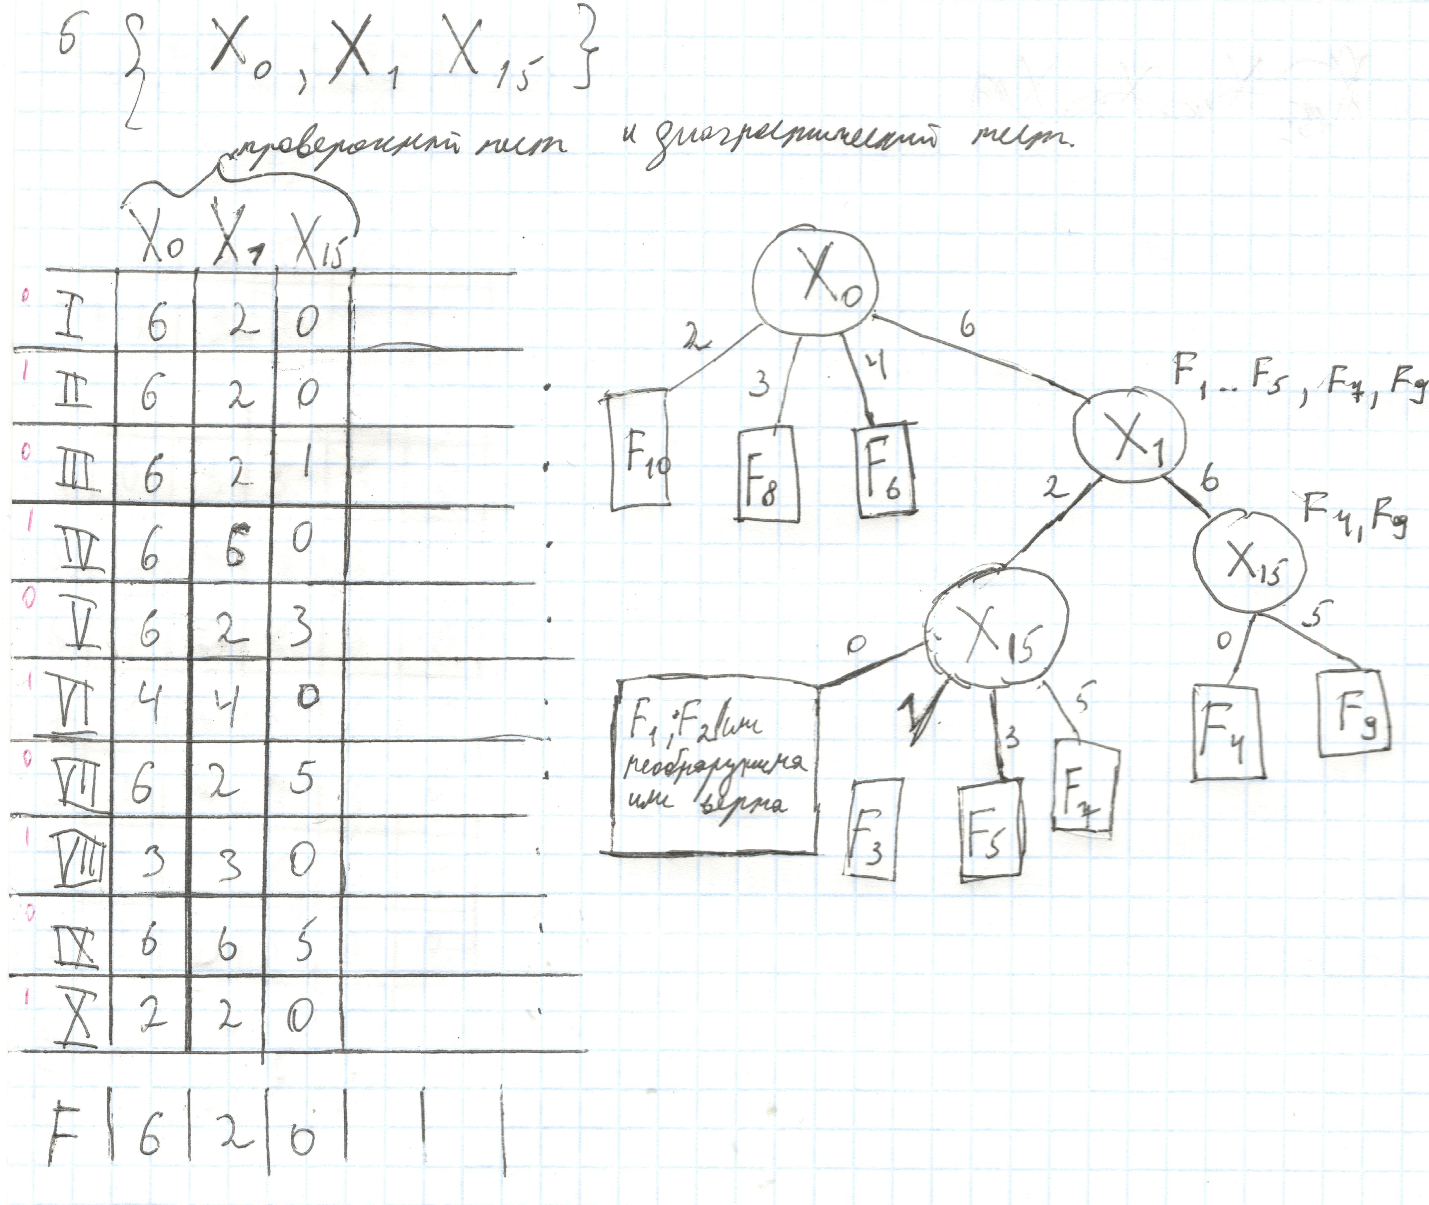 б { X₀, X₁ X₁₅ }
проверочный тест и диагностический тест.
X₀ X₁ X₁₅
0 I 6 2 0
1 II 6 2 0
0 III 6 2 1
1 IV 6 6 0
0 V 6 2 3
1 VI 4 4 0
0 VII 6 2 5
1 VIII 3 3 0
0 IX 6 6 5
1 X 2 2 0
F 6 2 0
X₀
2 3 4 6
F₁₀ F₈ F₆
F₁ .. F₅, F₇, F₉
X₁
2 6
F₄, F₉
X₁₅
0 5
F₄ F₉
X₁₅
0 1 3 5
F₁, F₂ или
необнаружима
или верна
F₃ F₅ F₇